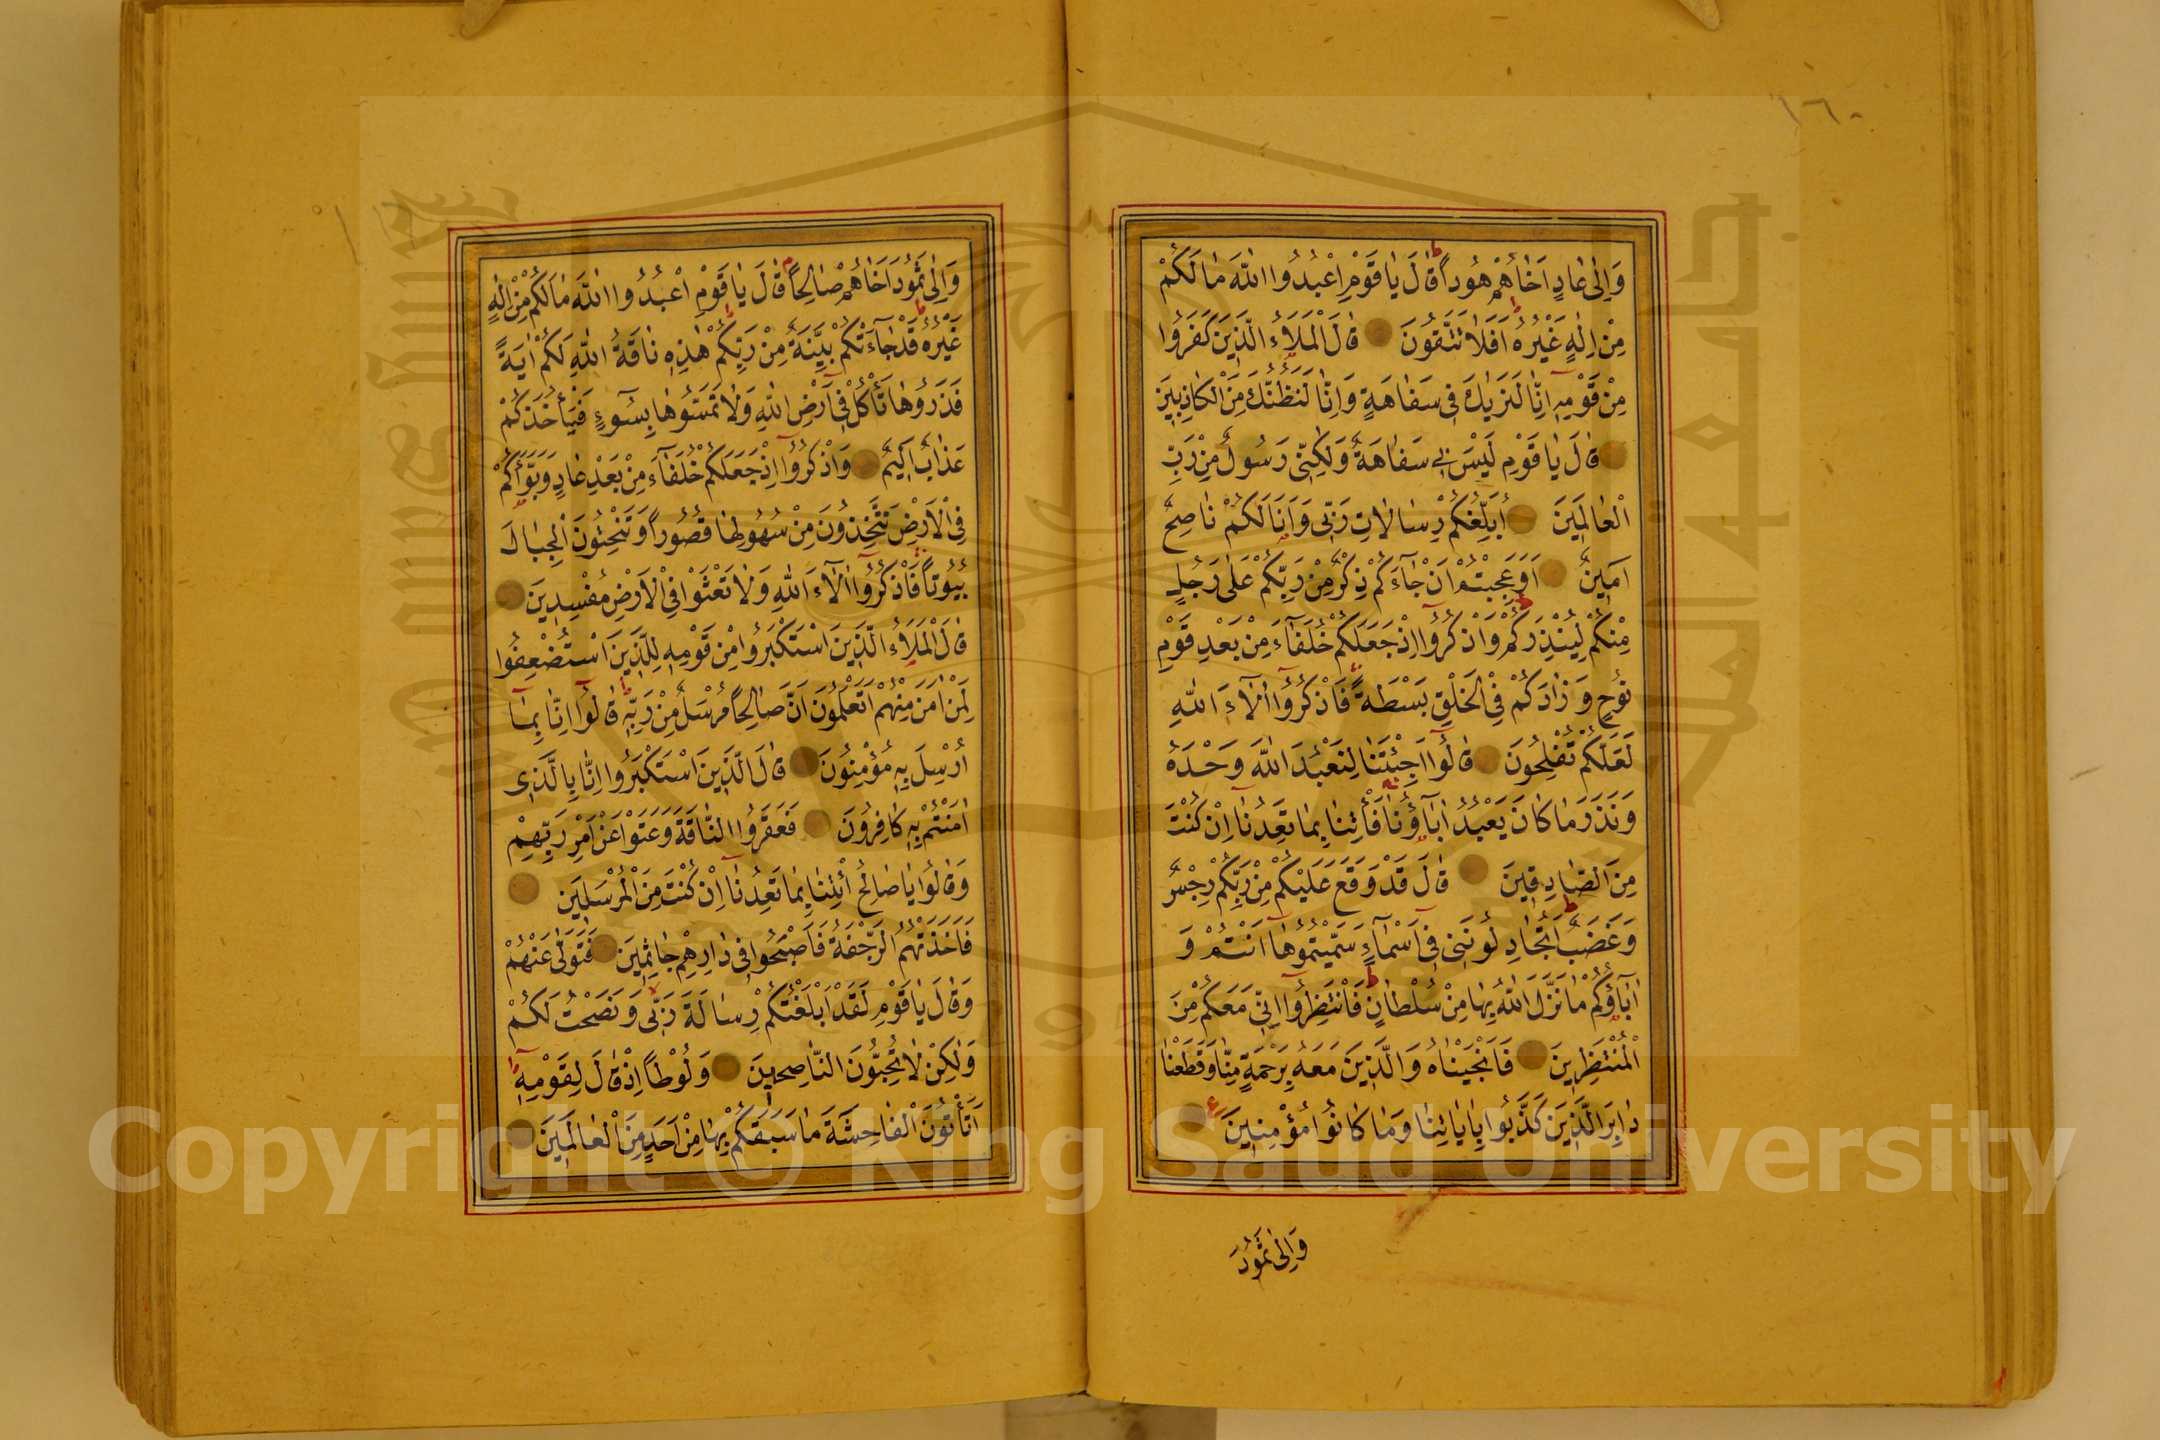 ١٦٠
وَاِلٰى عَادٍ اَخَاهُمْ هُودًا قَالَ يَا قَوْمِ اعْبُدُوا اللّٰهَ مَا لَكُمْ
مِنْ اِلٰهٍ غَيْرُهُ اَفَلَا تَتَّقُونَ قَالَ الْمَلَاُ الَّذِينَ كَفَرُوا
مِنْ قَوْمِهِ اِنَّا لَنَرٰيكَ فِى سَفَاهَةٍ وَاِنَّا لَنَظُنُّكَ مِنَ الْكَاذِبِينَ
قَالَ يَا قَوْمِ لَيْسَ بِى سَفَاهَةٌ وَلٰكِنِّى رَسُولٌ مِنْ رَبِّ
الْعَالَمِينَ اُبَلِّغُكُمْ رِسَالَاتِ رَبِّى وَاَنَا لَكُمْ نَاصِحٌ
اَمِينٌ اَوَعَجِبْتُمْ اَنْ جَاءَكُمْ ذِكْرٌ مِنْ رَبِّكُمْ عَلٰى رَجُلٍ
مِنْكُمْ لِيُنْذِرَكُمْ وَاذْكُرُوا اِذْ جَعَلَكُمْ خُلَفَاءَ مِنْ بَعْدِ قَوْمِ
نُوحٍ وَزَادَكُمْ فِى الْخَلْقِ بَسْطَةً فَاذْكُرُوا اٰلَاءَ اللّٰهِ
لَعَلَّكُمْ تُفْلِحُونَ قَالُوا اَجِئْتَنَا لِنَعْبُدَ اللّٰهَ وَحْدَهُ
وَنَذَرَ مَا كَانَ يَعْبُدُ اٰبَاؤُنَا فَأْتِنَا بِمَا تَعِدُنَا اِنْ كُنْتَ
مِنَ الصَّادِقِينَ قَالَ قَدْ وَقَعَ عَلَيْكُمْ مِنْ رَبِّكُمْ رِجْسٌ
وَغَضَبٌ اَتُجَادِلُونَنِى فِى اَسْمَاءٍ سَمَّيْتُمُوهَا اَنْتُمْ وَ
اٰبَاؤُكُمْ مَا نَزَّلَ اللّٰهُ بِهَا مِنْ سُلْطَانٍ فَانْتَظِرُوا اِنِّى مَعَكُمْ مِنَ
الْمُنْتَظِرِينَ فَاَنْجَيْنَاهُ وَالَّذِينَ مَعَهُ بِرَحْمَةٍ مِنَّا وَقَطَعْنَا
دَابِرَ الَّذِينَ كَذَّبُوا بِاٰيَاتِنَا وَمَا كَانُوا مُؤْمِنِينَ
وَاِلٰى ثَمُودَ
وَاِلٰى ثَمُودَ اَخَاهُمْ صَالِحًا قَالَ يَا قَوْمِ اعْبُدُوا اللّٰهَ مَا لَكُمْ مِنْ اِلٰهٍ
غَيْرُهُ قَدْ جَاءَتْكُمْ بَيِّنَةٌ مِنْ رَبِّكُمْ هٰذِهِ نَاقَةُ اللّٰهِ لَكُمْ اٰيَةً
فَذَرُوهَا تَأْكُلْ فِى اَرْضِ اللّٰهِ وَلَا تَمَسُّوهَا بِسُوءٍ فَيَأْخُذَكُمْ
عَذَابٌ اَلِيمٌ وَاذْكُرُوا اِذْ جَعَلَكُمْ خُلَفَاءَ مِنْ بَعْدِ عَادٍ وَبَوَّاَكُمْ
فِى الْاَرْضِ تَتَّخِذُونَ مِنْ سُهُولِهَا قُصُورًا وَتَنْحِتُونَ الْجِبَالَ
بُيُوتًا فَاذْكُرُوا اٰلَاءَ اللّٰهِ وَلَا تَعْثَوْا فِى الْاَرْضِ مُفْسِدِينَ
قَالَ الْمَلَاُ الَّذِينَ اسْتَكْبَرُوا مِنْ قَوْمِهِ لِلَّذِينَ اسْتُضْعِفُوا
لِمَنْ اٰمَنَ مِنْهُمْ اَتَعْلَمُونَ اَنَّ صَالِحًا مُرْسَلٌ مِنْ رَبِّهِ قَالُوا اِنَّا بِمَا
اُرْسِلَ بِهِ مُؤْمِنُونَ قَالَ الَّذِينَ اسْتَكْبَرُوا اِنَّا بِالَّذِى
اٰمَنْتُمْ بِهِ كَافِرُونَ فَعَقَرُوا النَّاقَةَ وَعَتَوْا عَنْ اَمْرِ رَبِّهِمْ
وَقَالُوا يَا صَالِحُ ائْتِنَا بِمَا تَعِدُنَا اِنْ كُنْتَ مِنَ الْمُرْسَلِينَ
فَاَخَذَتْهُمُ الرَّجْفَةُ فَاَصْبَحُوا فِى دَارِهِمْ جَاثِمِينَ فَتَوَلّٰى عَنْهُمْ
وَقَالَ يَا قَوْمِ لَقَدْ اَبْلَغْتُكُمْ رِسَالَةَ رَبِّى وَنَصَحْتُ لَكُمْ
وَلٰكِنْ لَا تُحِبُّونَ النَّاصِحِينَ وَلُوطًا اِذْ قَالَ لِقَوْمِهِ
اَتَأْتُونَ الْفَاحِشَةَ مَا سَبَقَكُمْ بِهَا مِنْ اَحَدٍ مِنَ الْعَالَمِينَ
Copyright © King Saud University